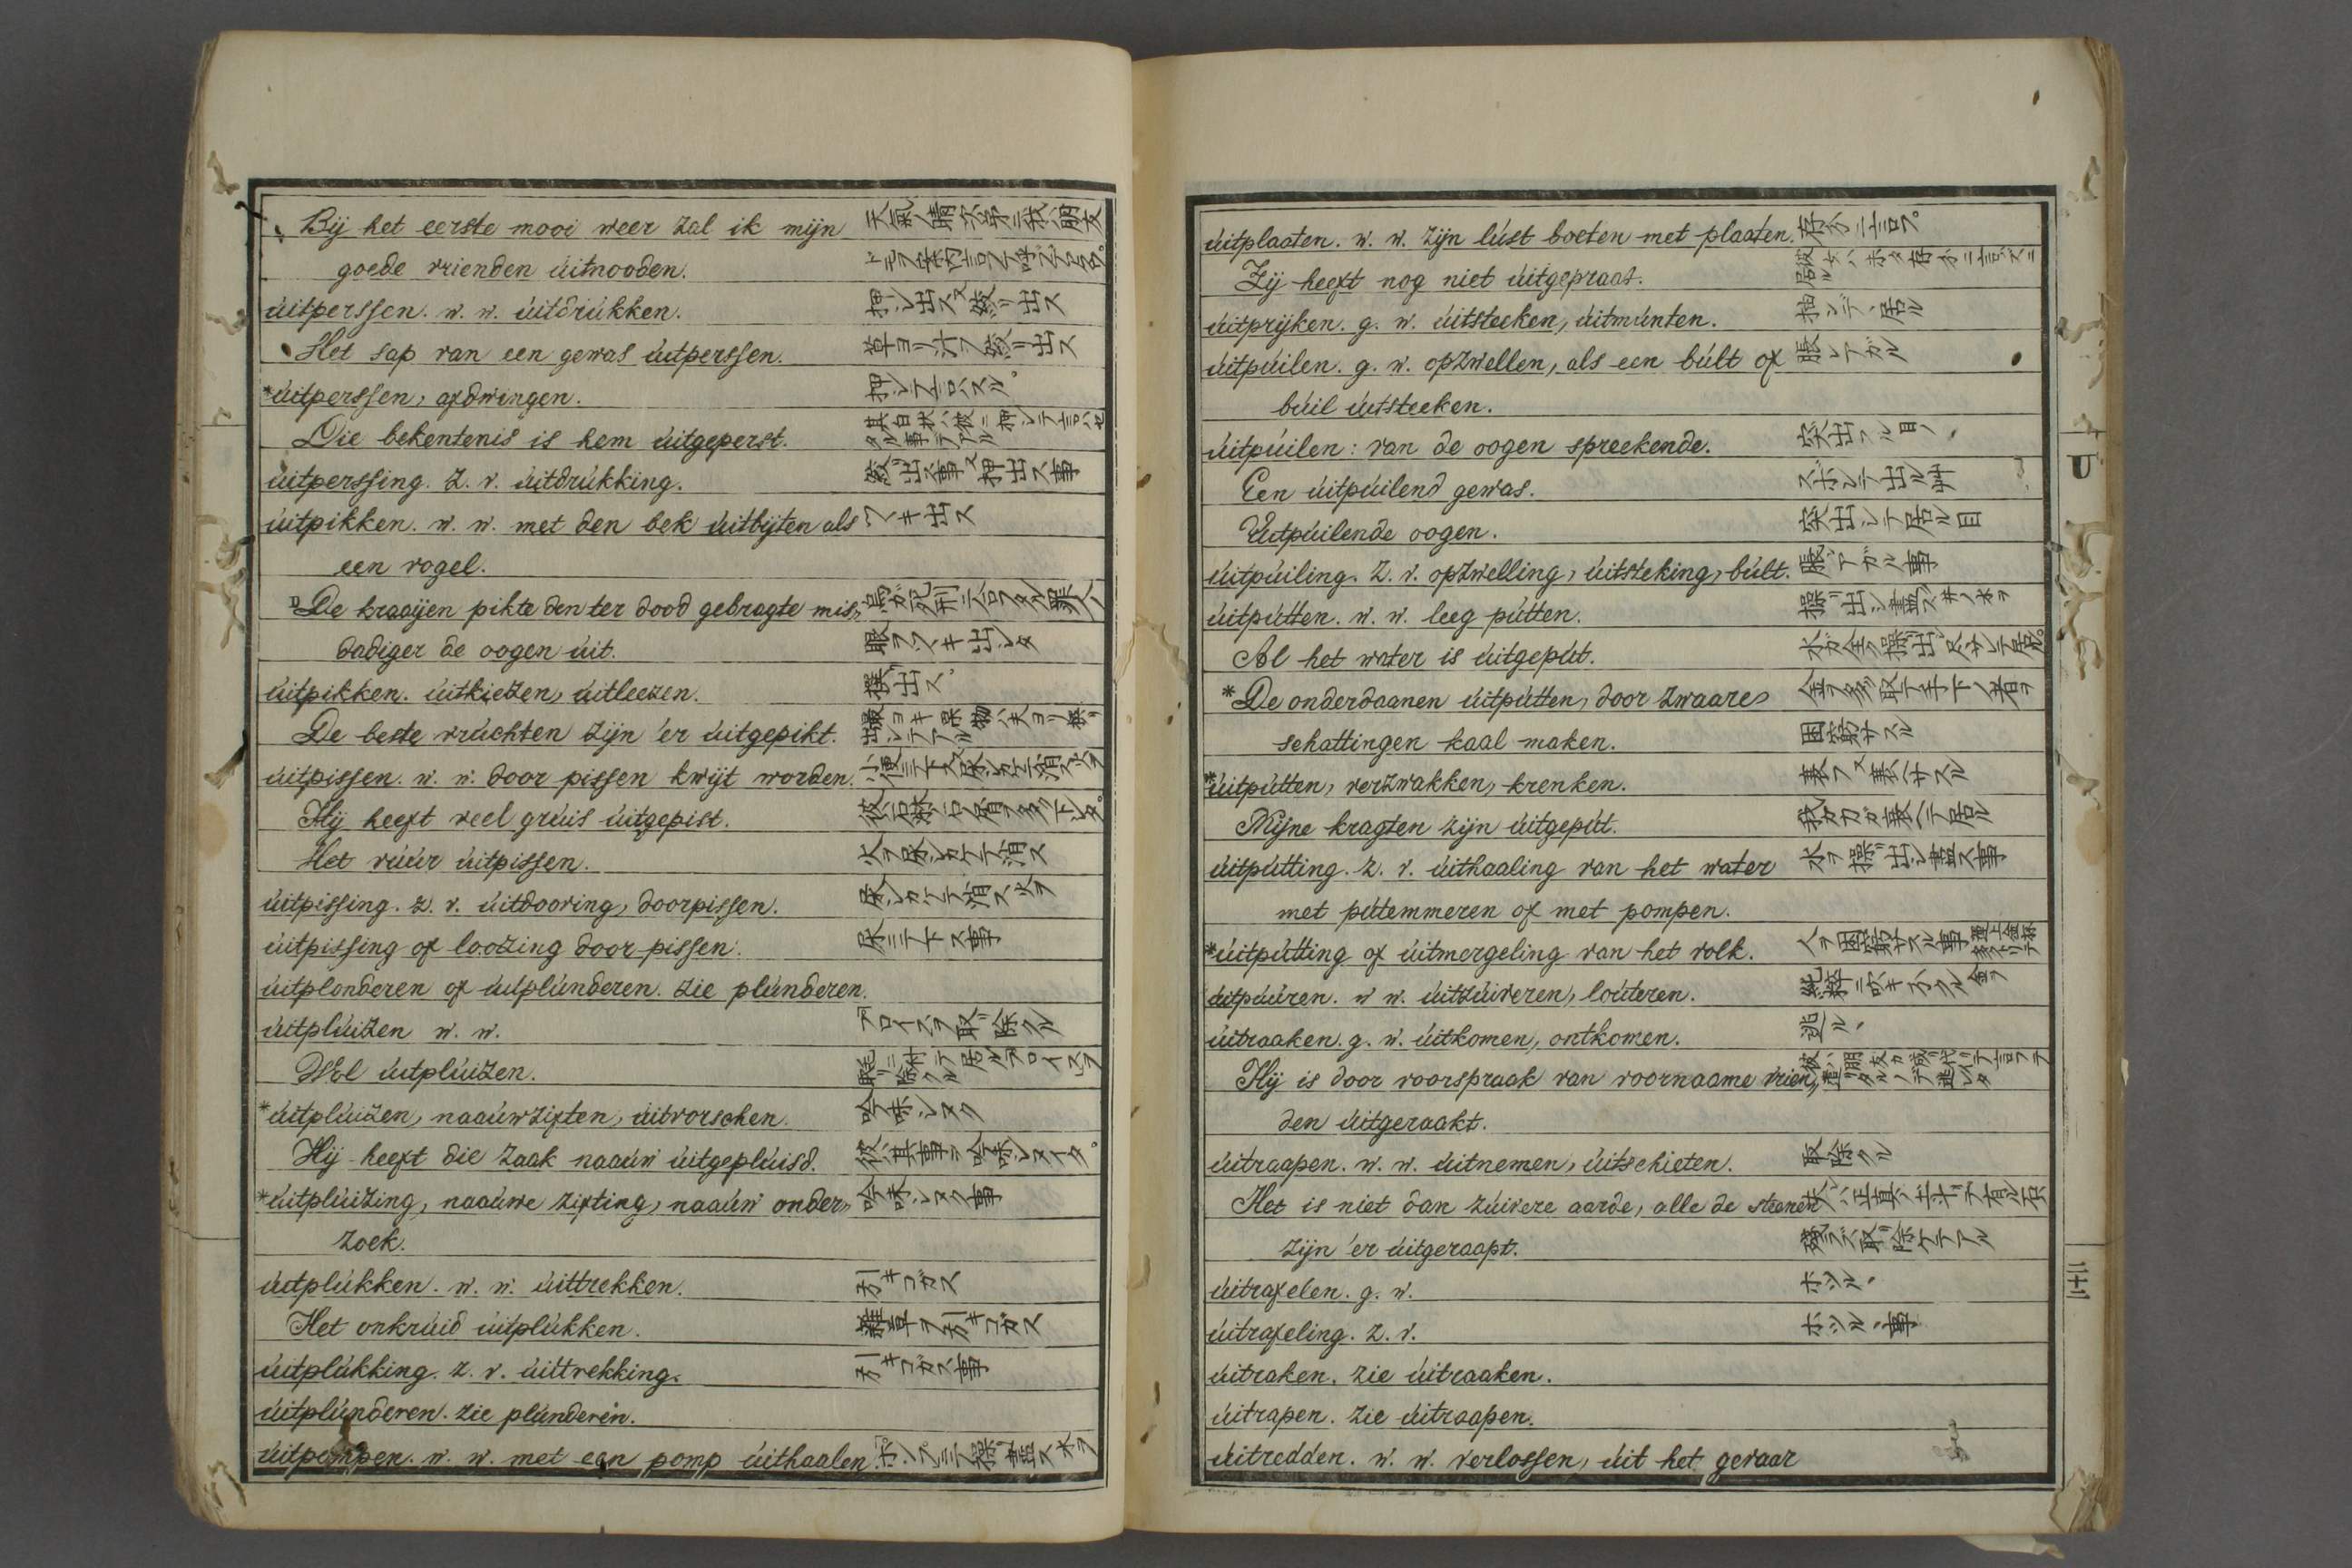 Bij het eerste mooi weer zal ik mijn 天氣ノ晴次第ニ我ハ朋友
goede vrienden úitnooden.
úitperssen. w. w. úitdrúkken. 押シ出ス又絞リ出ス
Het sap van een gewas úitperssen. 草ヨリ汁ヲ絞リ出ス
*úitperssen, afdwingen. 押シテ言ハスル。
Die bekentenis is hem úitgeperst. 其白状ハ彼ニ押シテ言ハセタル事テアル
úitperssing. z. v. úitdrúkking. 絞リ出ス事又押出ス事
úitpikken. w. w. met den bek úitbijten als ツヽキ出ス
een vogel.
De kraaijen pikte den ter dood gebragte mis„
dadiger de oogen úit. 眼ヲツヽキ出シタ
úitpikken. úitkiezen, úitleezen. 撰出ス。
De beste vrúchten zijn 'er úitgepikt.
úitpissen. w. w. door pissen kwijt worden.
Hij heeft veel grúis úitgepist.
Het vúúr úitpissen. 火ヲ尿シカケテ消ス
úitpissing. z. v. úitdooving, doorpissen. 尿シカケテ消ス事
úitpissing of loozing door pissen. 尿ニテ下ス事
úitplonderen of úitplúnderen. zie plúnderen.
úitplúizen w. w. 「プロイス」ヲ取リ除クル
Wol úitplúizen.
*úitplúizen, naaúwziften, úitvorschen. 吟味シヌク
Hij heeft die zaak naaúw úitgeplúisd. 彼ハ其事ヲ吟味シヌイタ。
*úitplúizing, naaúwe zifting, naaúw onder„ 吟味シヌク事
zoek.
úitplúkken. w. w. úittrekken. 引キコガス
Het onkrúid úitplúkken. 雜草ヲ引キコガス
úitplúkking. z. v. úittrekking. 引キコガス事
úitplúnderen. zie plúnderen.
úitpompen. w. w. met een pomp úithaalen. 「ポンプ」ニテ操リ盡ス水ヲ
úitplaaten. w. w. zijn lúst boeten met plaaten. 存分ニ言フ。
Zij heeft nog niet úitgepraat. 彼女ハ未タ存分ニ言ハズニ居ル
úitprijken. g. w. úitsteeken, úitmúnten. 抽シデヽ居ル
úitpúilen. g. w. opzwellen, als een búlt of 脹レアガル
búil úitsteeken.
úitpúilen: van de oogen spreekende. 突出ヅル目ノヽ
Een úitpúilend gewas.
Uitpúilende oogen. 突出シテ居ル目
úitpúiling. z. v. opzwelling, úitsteking, búlt. 脹レアガル事
úitpútten. w. w. leeg pútten.
Al het water is úitgepút.
*De onderdaanen úitpútten, door zwaare
schattingen kaal maken. 困窮サスル
*úitpútten, verzwakken, krenken. 衰フ又衰ヘサスル
Mijne kragten zijn úitgepút. 我カ力ガ衰ヘテ居ル
úitpútting. z. v. úithaaling van het water 水ヲ操リ出シ盡ス事
met pútemmeren of met pompen.
*úitpútting of úitmergeling van het volk. 人ヲ困窮サスル事
úitpúúren. w w. úitzúiveren, loúteren.
úitraaken. g. w. úitkomen, ontkomen. 逃ルヽ
Hij is door voorspraak van voornaame vrien„
den úitgeraakt.
úitraapen. w. w. úitnemen, úitschieten. 取除クル
Het is niet dan zúivere aarde, alle de steenen
zijn 'er úitgeraapt. 殘ラズ取リ除ケテアル
úitrafelen. g. w. ホツルヽ
úitrafeling. z. v. ホツルヽ事
úitraken. zie úitraaken.
úitrapen. zie úitraapen.
úitredden. w. w. verlossen, úit het gevaar